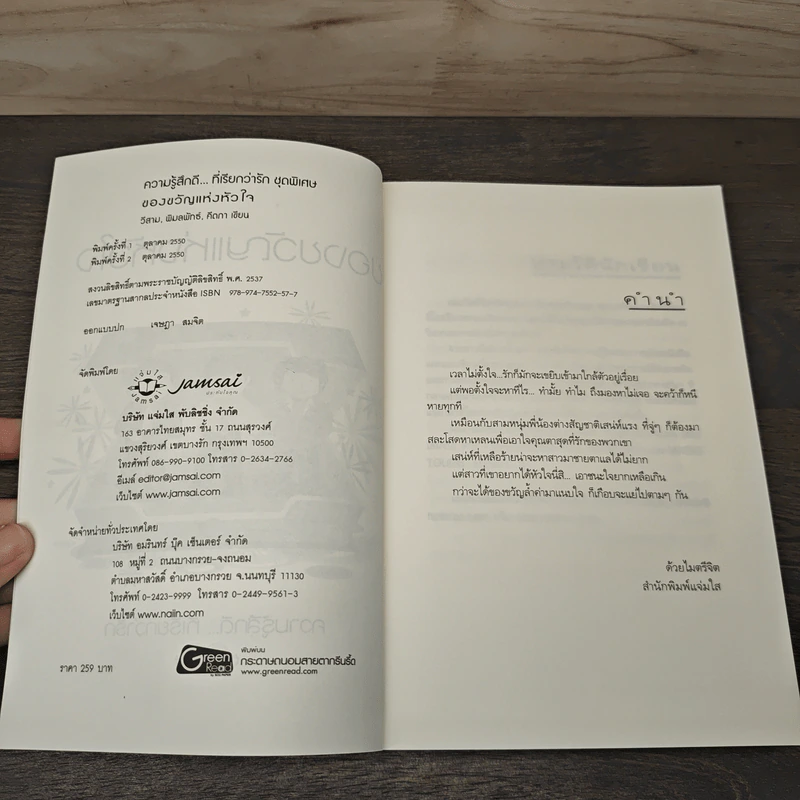 ความรู้สึกดี... ที่เรียกว่ารัก ชุดพิเศษ
ของขวัญแห่งหัวใจ
วีสาม, พิมลพัทธ์, คีตกา เขียน
พิมพ์ครั้งที่ 1 ตุลาคม 2550
พิมพ์ครั้งที่ 2 ตุลาคม 2550
สงวนลิขสิทธิ์ตามพระราชบัญญัติลิขสิทธิ์ พ.ศ. 2537
เลขมาตรฐานสากลประจำหนังสือ ISBN 978-974-7552-57-7
ออกแบบปก เจษฎา สมจิต
จัดพิมพ์โดย
แจ่มใส
Jamsai
Jamsai
บริษัท แจ่มใส พับลิชชิ่ง จำกัด
163 อาคารไทยสมุทร ชั้น 17 ถนนสุรวงศ์
แขวงสุริยวงศ์ เขตบางรัก กรุงเทพฯ 10500
โทรศัพท์ 086-990-9100 โทรสาร 0-2634-2766
อีเมล์ editor@jamsai.com
เว็บไซต์ www.jamsai.com
จัดจำหน่ายทั่วประเทศโดย
บริษัท อมรินทร์ บุ๊ค เซ็นเตอร์ จำกัด
108 หมู่ที่ 2 ถนนบางกรวย-จงถนอม
ตำบลมหาสวัสดิ์ อำเภอบางกรวย จ.นนทบุรี 11130
โทรศัพท์ 0-2423-9999 โทรสาร 0-2449-9561-3
เว็บไซต์ www.naiin.com
ราคา 259 บาท
Green Read
พิมพ์บน
กระดาษถนอมสายตากรีนรี้ด
www.greenread.com
คำนำ
เวลาไม่ตั้งใจ...รักก็มักจะเขยิบเข้ามาใกล้ตัวอยู่เรื่อย
แต่พอตั้งใจจะหาทีไร... ทำมั้ย ทำไม ถึงมองหาไม่เจอ จะคว้าก็หนี
หายทุกที
เหมือนกับสามหนุ่มพี่น้องต่างสัญชาติเสน่ห์แรง ที่จู่ๆ ก็ต้องมา
สละโสดหาเหลนเพื่อเอาใจคุณตาสุดที่รักของพวกเขา
เสน่ห์ที่เหลือร้ายน่าจะหาสาวมาชายตาแลได้ไม่ยาก
แต่สาวที่เขาอยากได้หัวใจนี่สิ... เอาชนะใจยากเหลือเกิน
กว่าจะได้ของขวัญล้ำค่ามาแนบใจ ก็เกือบจะแย่ไปตามๆ กัน
ด้วยไมตรีจิต
สำนักพิมพ์แจ่มใส